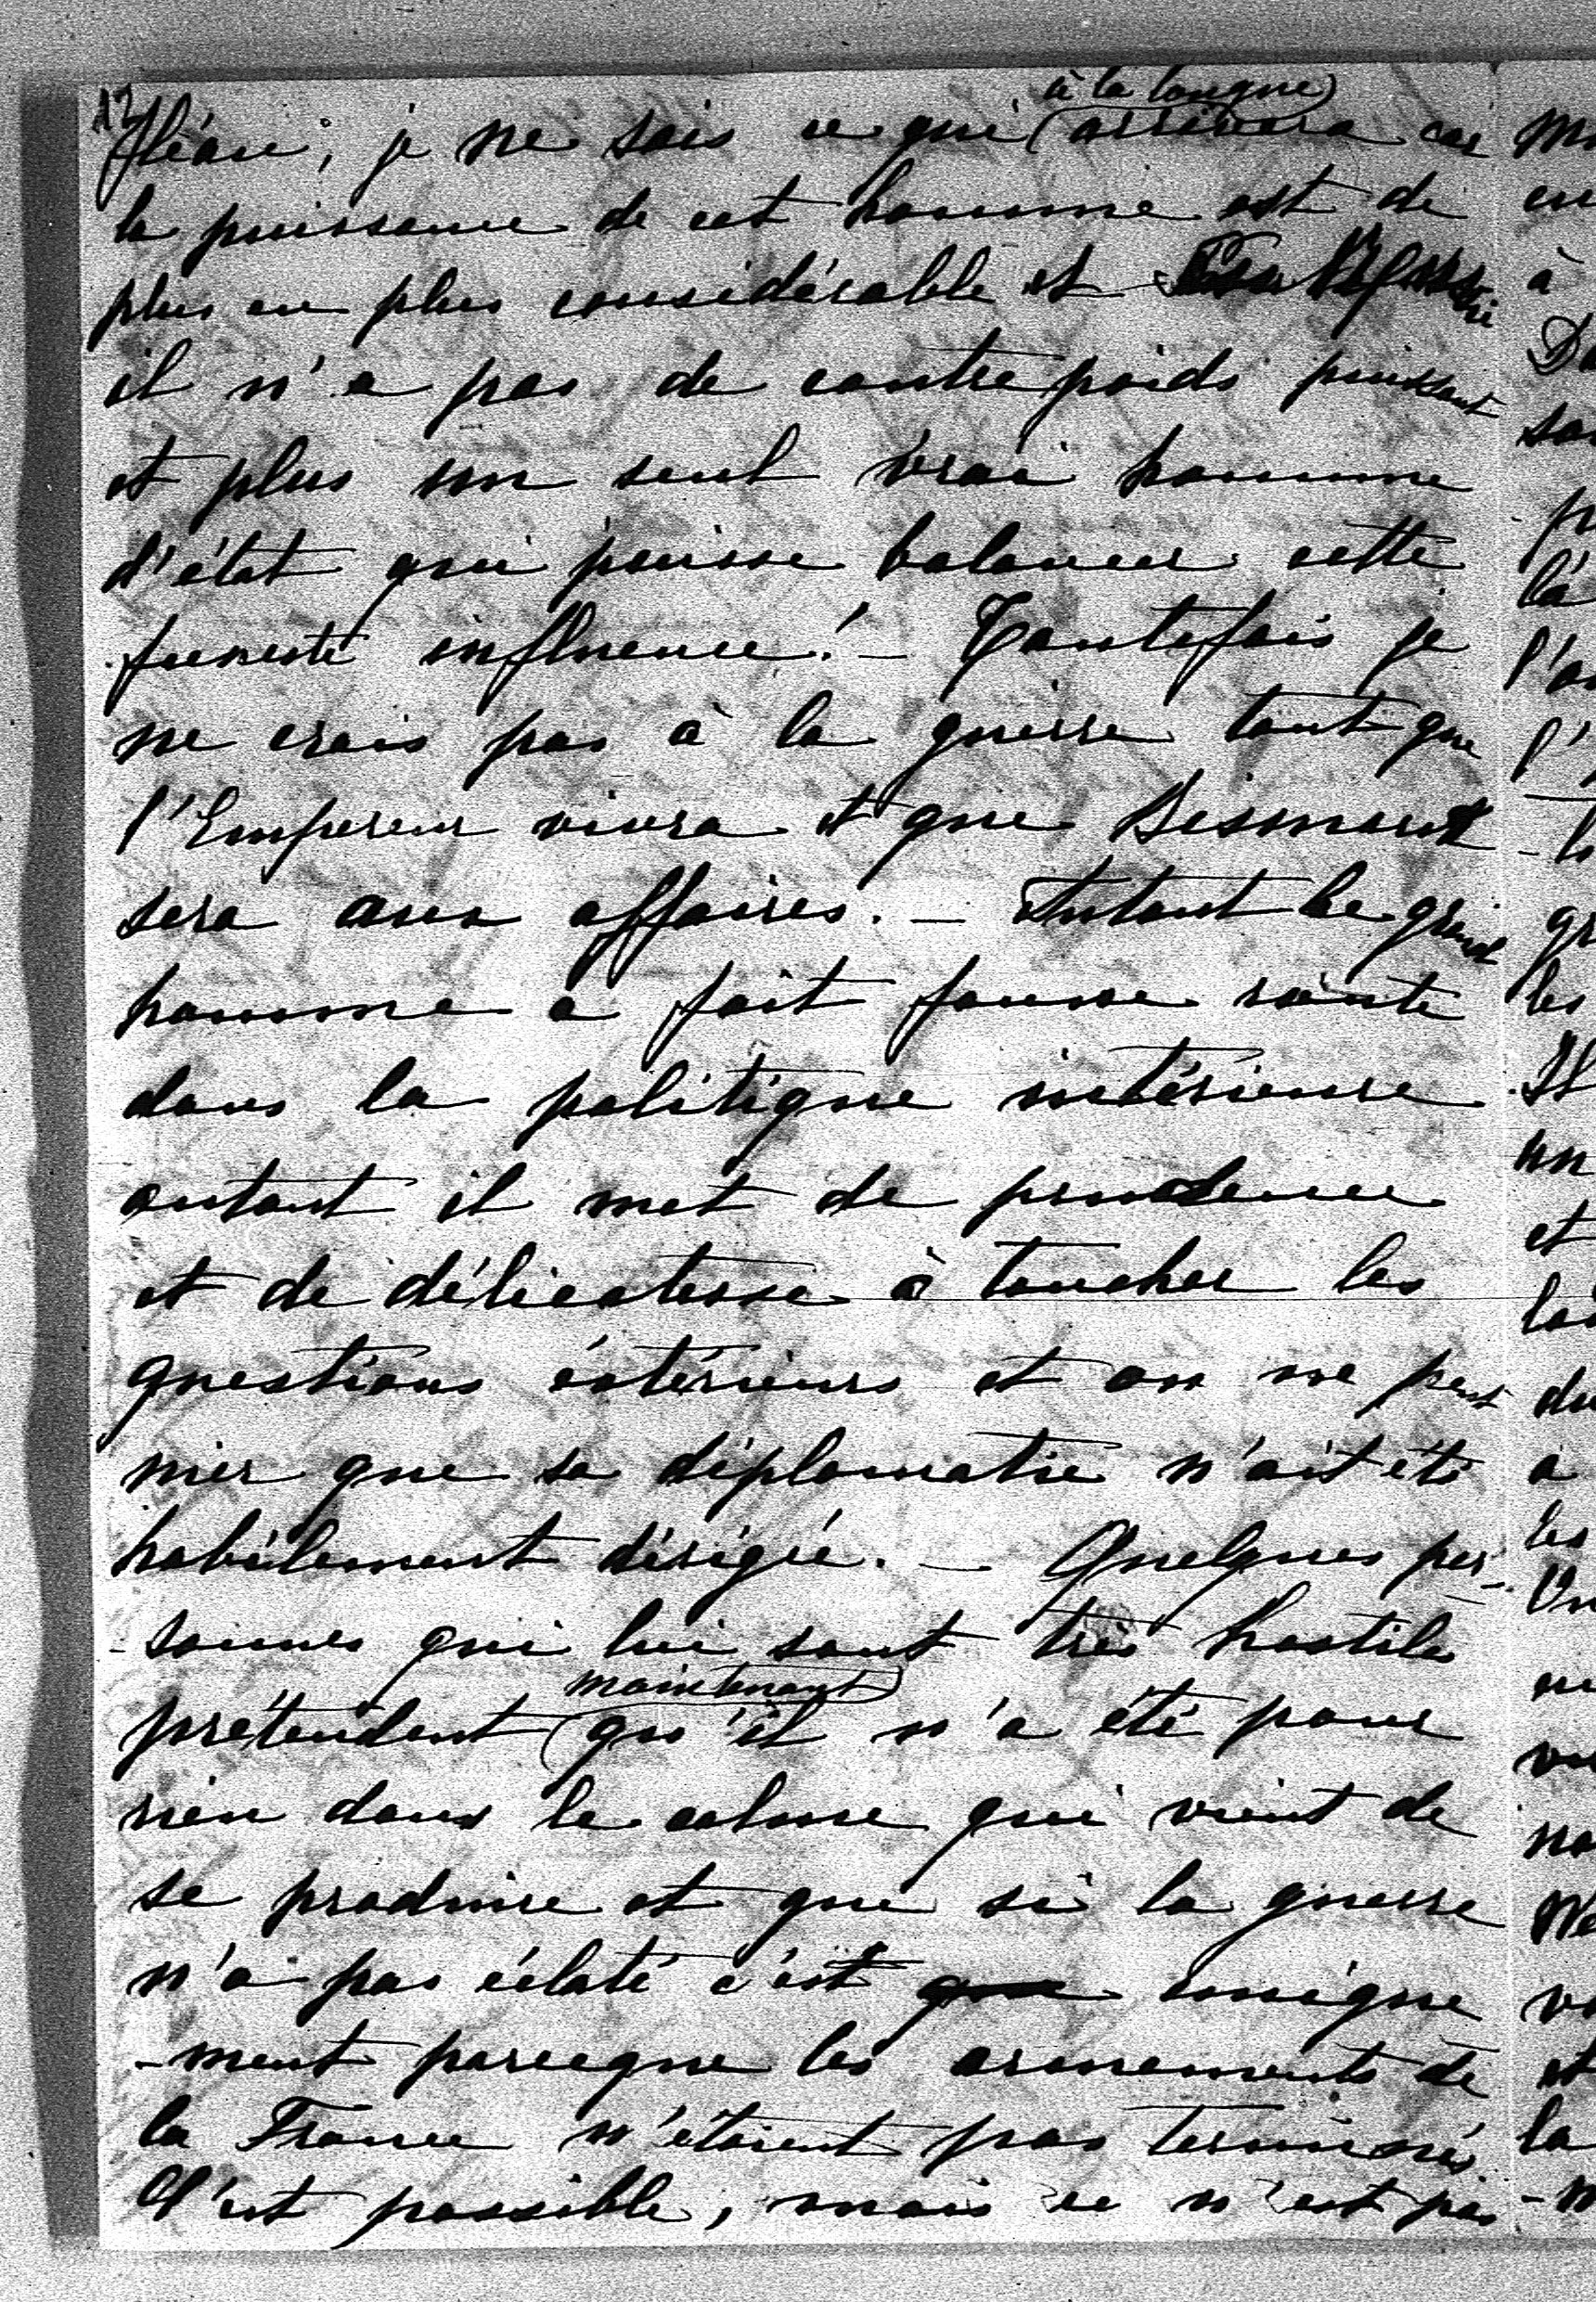 12
fléau; je ne sais ce qui (à la longue) arrivera car
la puissance de cet homme est de
plus en plus considérable et
il n'a pas de contrepoids puissant
et plus un seul vrai homme
d'état qui puisse balancer cette
funeste influence! — Toutefois je
ne crois pas à la guerre tant que
l'Empereur vivra et que Bismark
sera aux affaires. — Autant le grand
homme a fait fausse route
dans la politique intérieure
autant il met de prudence
et de délicatesse à toucher les
questions éxtérieurs et on ne peut
nier que sa diplomatie n'ait été
habilement dirigée. — Quelques per-
-sonnes qui lui sont très hostiles
prétendent (maintenant) qu'il n'a été pour
rien dans le calme qui vient de
se produire et que si la guerre
n'a pas éclaté c'est que unique
-ment parceque les armements de
la France n'étaient pas terminés.
C'est possible, mais ce n'est pas